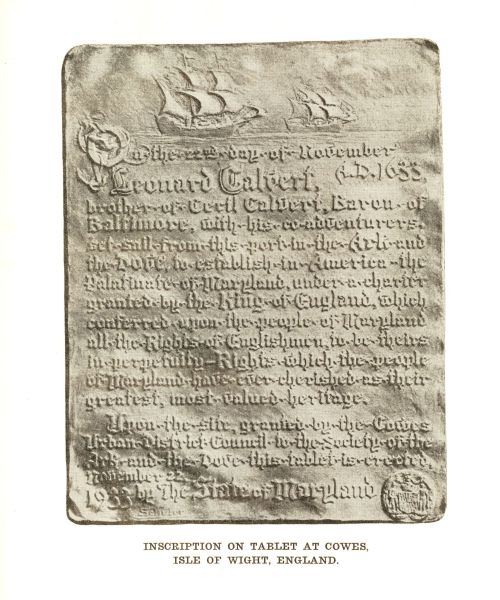 On the 22nd day of November
Leonard Calvert, (A.D.) 1633,
brother of Cecil Calvert, Baron of
Baltimore, with his co-adventurers,
set sail from this port in the Ark and
the Dove, to establish in America the
Palatinate of Maryland, under a charter
granted by the King of England, which
conferred upon the people of Maryland
all the Rights of Englishmen to be theirs
in perpetuity—Rights which the people
of Maryland have ever cherished as their
greatest, most valued heritage.
Upon the site, granted by the Cowes
Urban District Council to the Society of the
Ark and the Dove this tablet is erected
November 22
1933 by The State of Maryland
INSCRIPTION ON TABLET AT COWES,
ISLE OF WIGHT, ENGLAND.